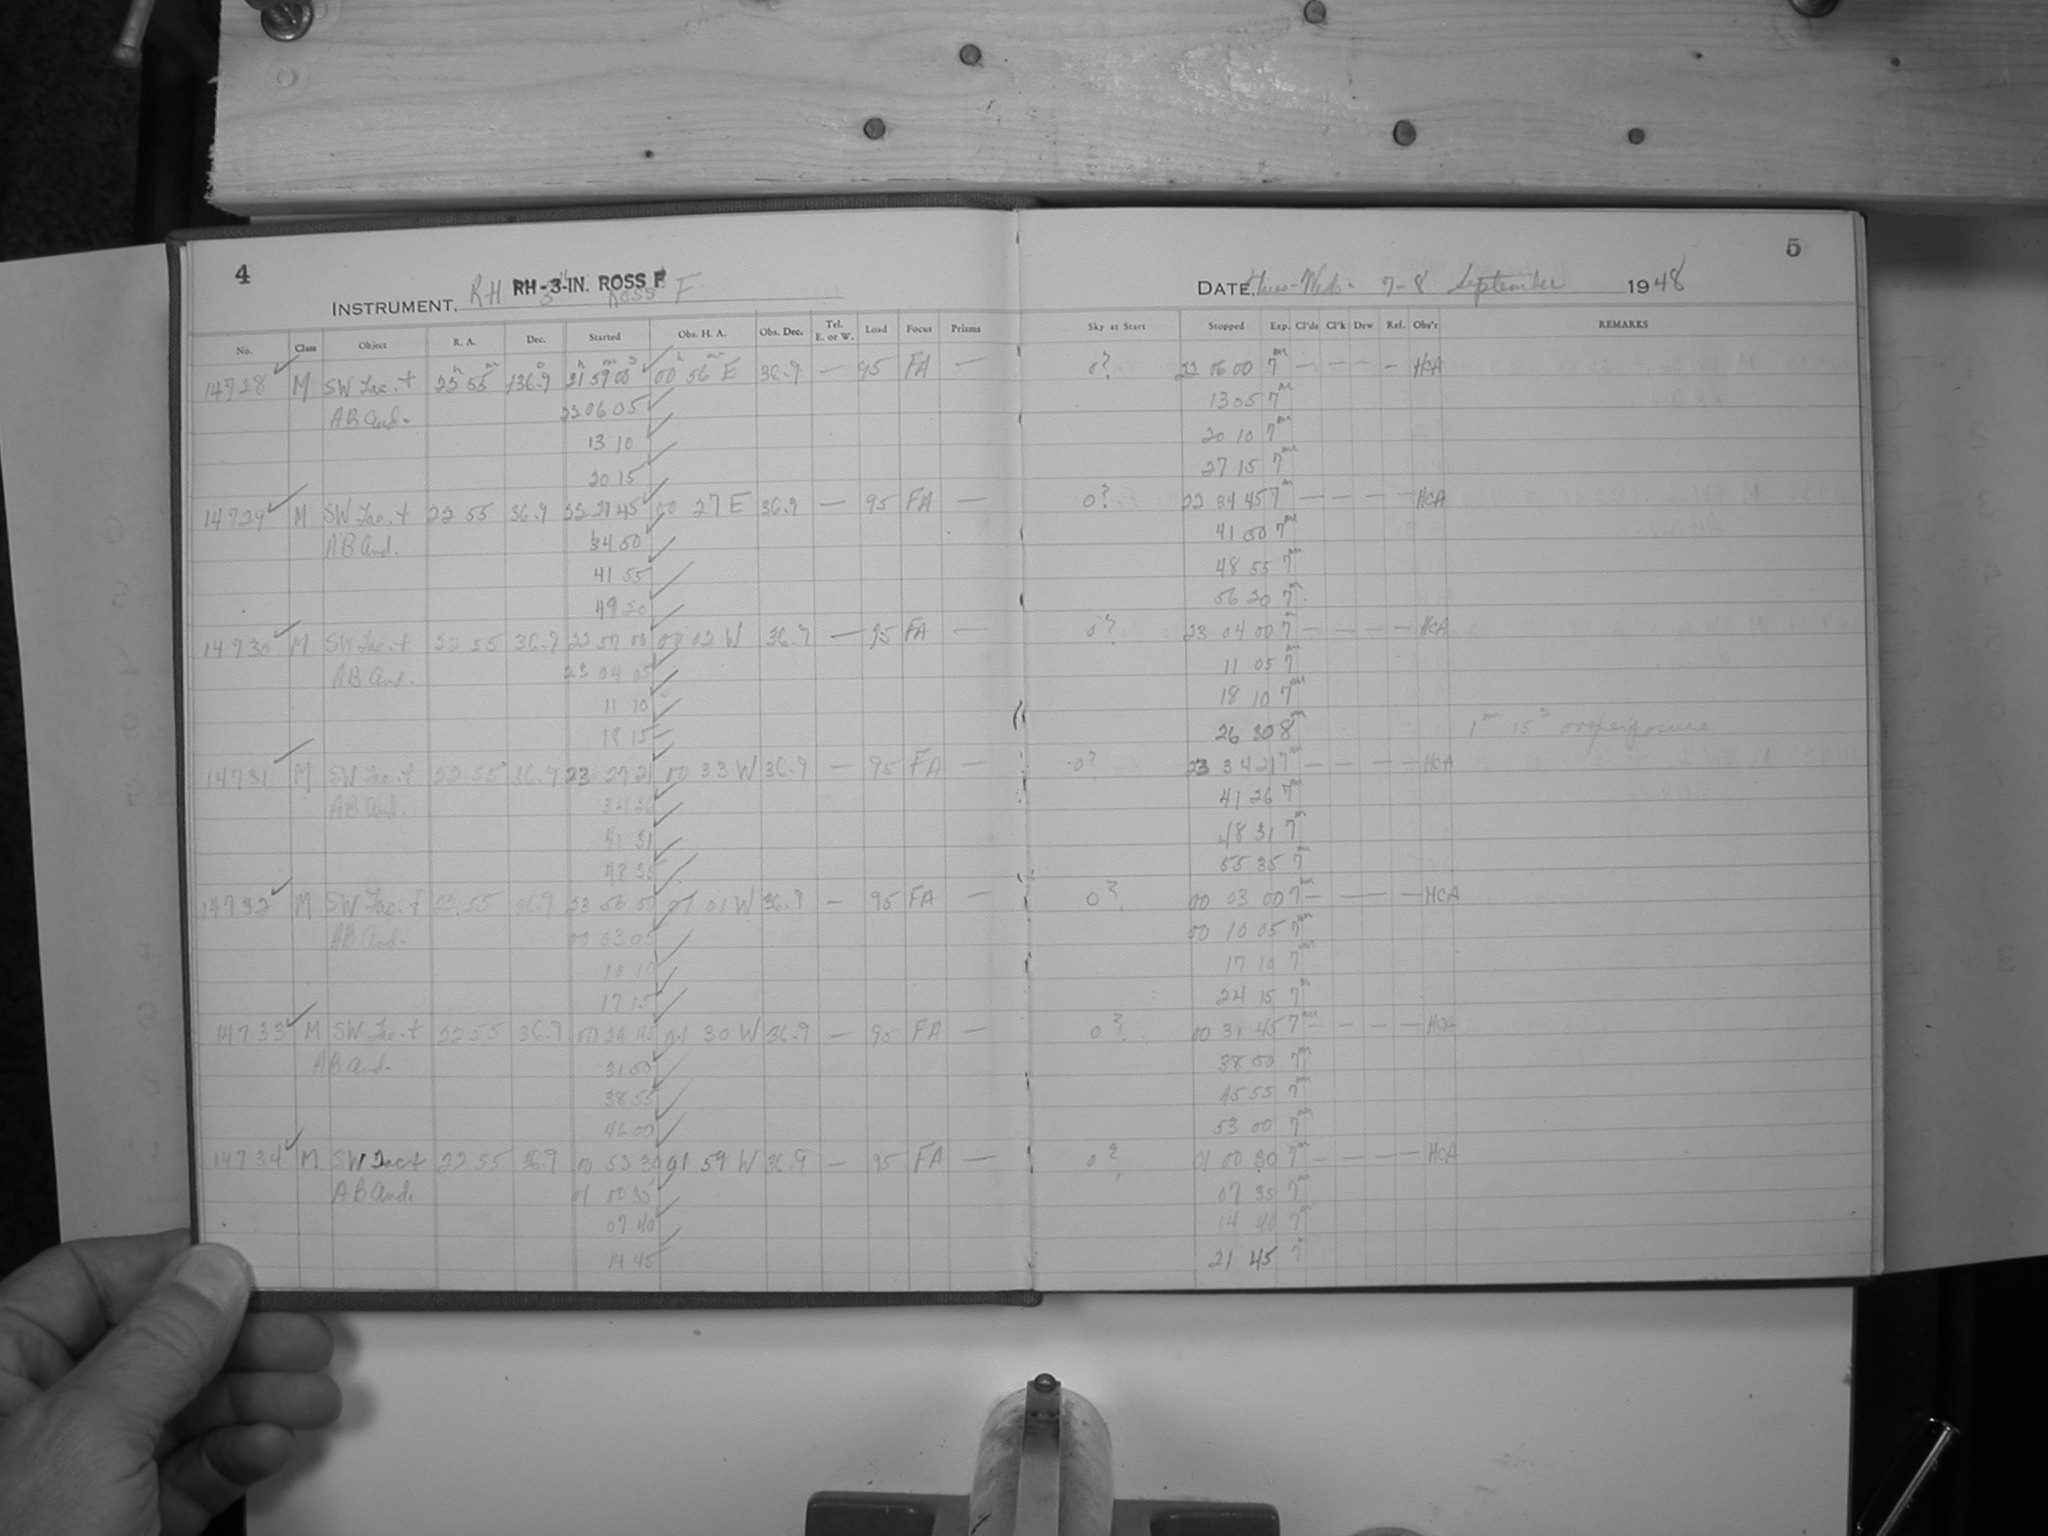 4
5
RH RH-3-IN. ROSS F
INSTRUMENT, 3" ROSS F
DATE, Tues-Wed. 7-8 September 1948
No. Class Object R. A. Dec. Started Obs. H. A. Obs. Dec. Tel. E. or W. Load Focus Prisms Sky at Start Stopped Exp. Cl'ds Cl'k Dew Ref. Obs'r REMARKS
14728 M SW Lac. + 22h 55m +36.9° 21h 59m 00s 00h 56m E 36.9 — 95 FA — 0? 22 06 00 7m — — — — HCA
AB And. 22 06 05 13 05 7m
13 10 20 10 7m
20 15 27 15 7m
14729 M SW Lac. + 22 55 36.9 22 27 45 00 27 E 36.9 — 95 FA — 0? 22 34 45 7m — — — — HCA
AB And. 34 50 41 50 7m
41 55 48 55 7m
49 20 56 20 7m
14730 M SW Lac. + 22 55 36.9 22 57 00 00 02 W 36.9 — 95 FA — 0? 23 04 00 7m — — — — HCA
AB And. 23 04 05 11 05 7m
11 10 18 10 7m
18 15 26 30 8m 1m 15s overexposure
14731 M SW Lac. + 22 55 36.9 23 27 21 00 33 W 36.9 — 95 FA — 0? 23 34 21 7m — — — — HCA
AB And. 34 26 41 26 7m
41 31 48 31 7m
48 35 55 35 7m
14732 M SW Lac. + 22 55 36.9 23 56 00 01 01 W 36.9 — 95 FA — 0? 00 03 00 7m — — — HCA
AB And. 00 03 05 00 10 05 7m
10 10 17 10 7m
17 15 24 15 7m
14733 M SW Lac. + 22 55 36.9 00 24 45 01 30 W 36.9 — 95 FA — 0? 00 31 45 7m — — — — HCA
AB And. 31 50 38 50 7m
38 55 45 55 7m
46 00 53 00 7m
14734 M SW Lac + 22 55 36.9 00 53 30 01 59 W 36.9 — 95 FA — 0? 01 00 30 7m — — — — HCA
AB And. 01 00 35 07 35 7m
07 40 14 40 7m
14 45 21 45 7